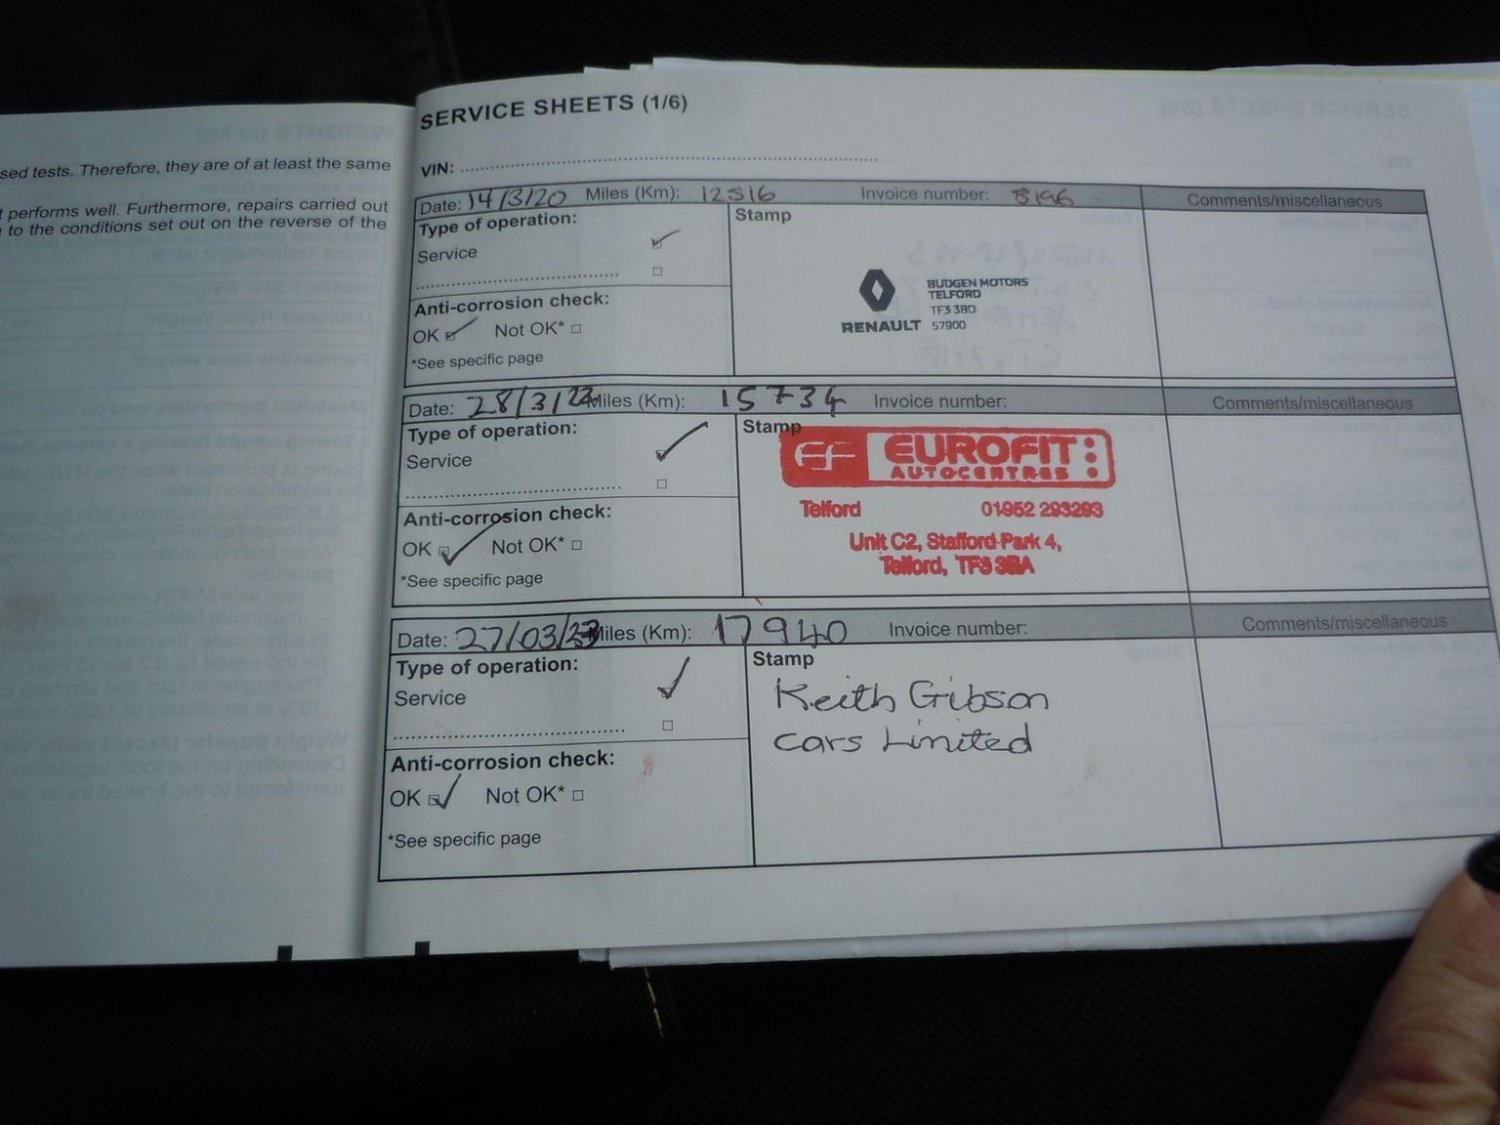 sed tests. Therefore, they are of at least the same
performs well. Furthermore, repairs carried out
to the conditions set out on the reverse of the
SERVICE SHEETS (1/6)
VIN:
Date: 14/3/20 Miles (Km): 12516 Invoice number: 8196 Comments/miscellaneous
Type of operation:
Stamp
Service
BUDGEN MOTORS
TELFORD
TF3 3BD
RENAULT 57900
Anti-corrosion check:
OK Not OK*
*See specific page
Date: 28/3/22 Miles (Km): 15734 Invoice number: Comments/miscellaneous
Type of operation:
Stamp
Service
EF EUROFIT:
AUTOCENTRES
Telford 01952 293293
Unit C2, Stafford Park 4,
Telford, TF3 3BA
Anti-corrosion check:
OK Not OK*
*See specific page
Date: 27/03/23 Miles (Km): 17940 Invoice number: Comments/miscellaneous
Type of operation:
Stamp
Service
Keith Gibson
Cars Limited
Anti-corrosion check:
OK Not OK*
*See specific page